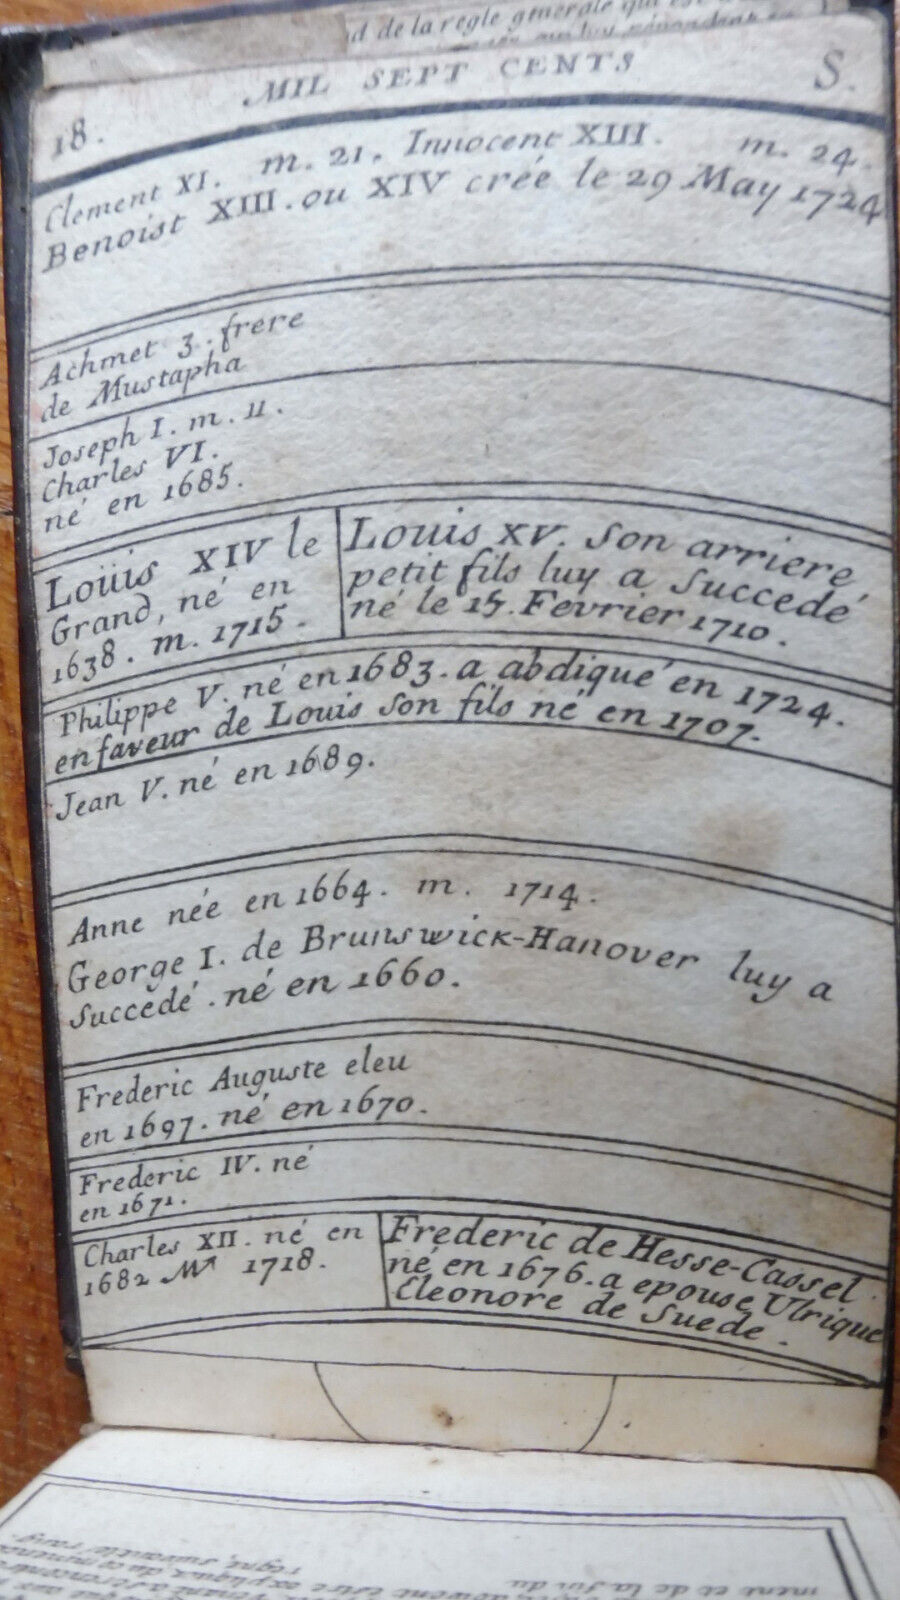 d de la regle generale qui est
18. MIL SEPT CENTS S.
Clement XI. m. 21. Innocent XIII. m. 24.
Benoist XIII. ou XIV creé le 29 May 1724
Achmet 3. frere
de Mustapha
Joseph I. m. 11.
Charles VI.
né en 1685.
Loüis XIV le
Grand, né en
1638. m. 1715.
Louis XV. Son arriere
petit fils luy a Succedé
né le 15. Fevrier 1710.
Philippe V. né en 1683. a abdiqué en 1724.
en faveur de Louis Son fils né en 1707.
Jean V. né en 1689.
Anne née en 1664. m. 1714.
George I. de Brunswick-Hanover luy a
Succedé. né en 1660.
Frederic Auguste eleu
en 1697. né en 1670.
Frederic IV. né
en 1671.
Charles XII. né en
1682 Mt 1718.
Frederic de Hesse-Cassel
né en 1676. a epousé Ulrique
Eleonore de Suede.
ment et de la fin du
regne, suivant le rang.